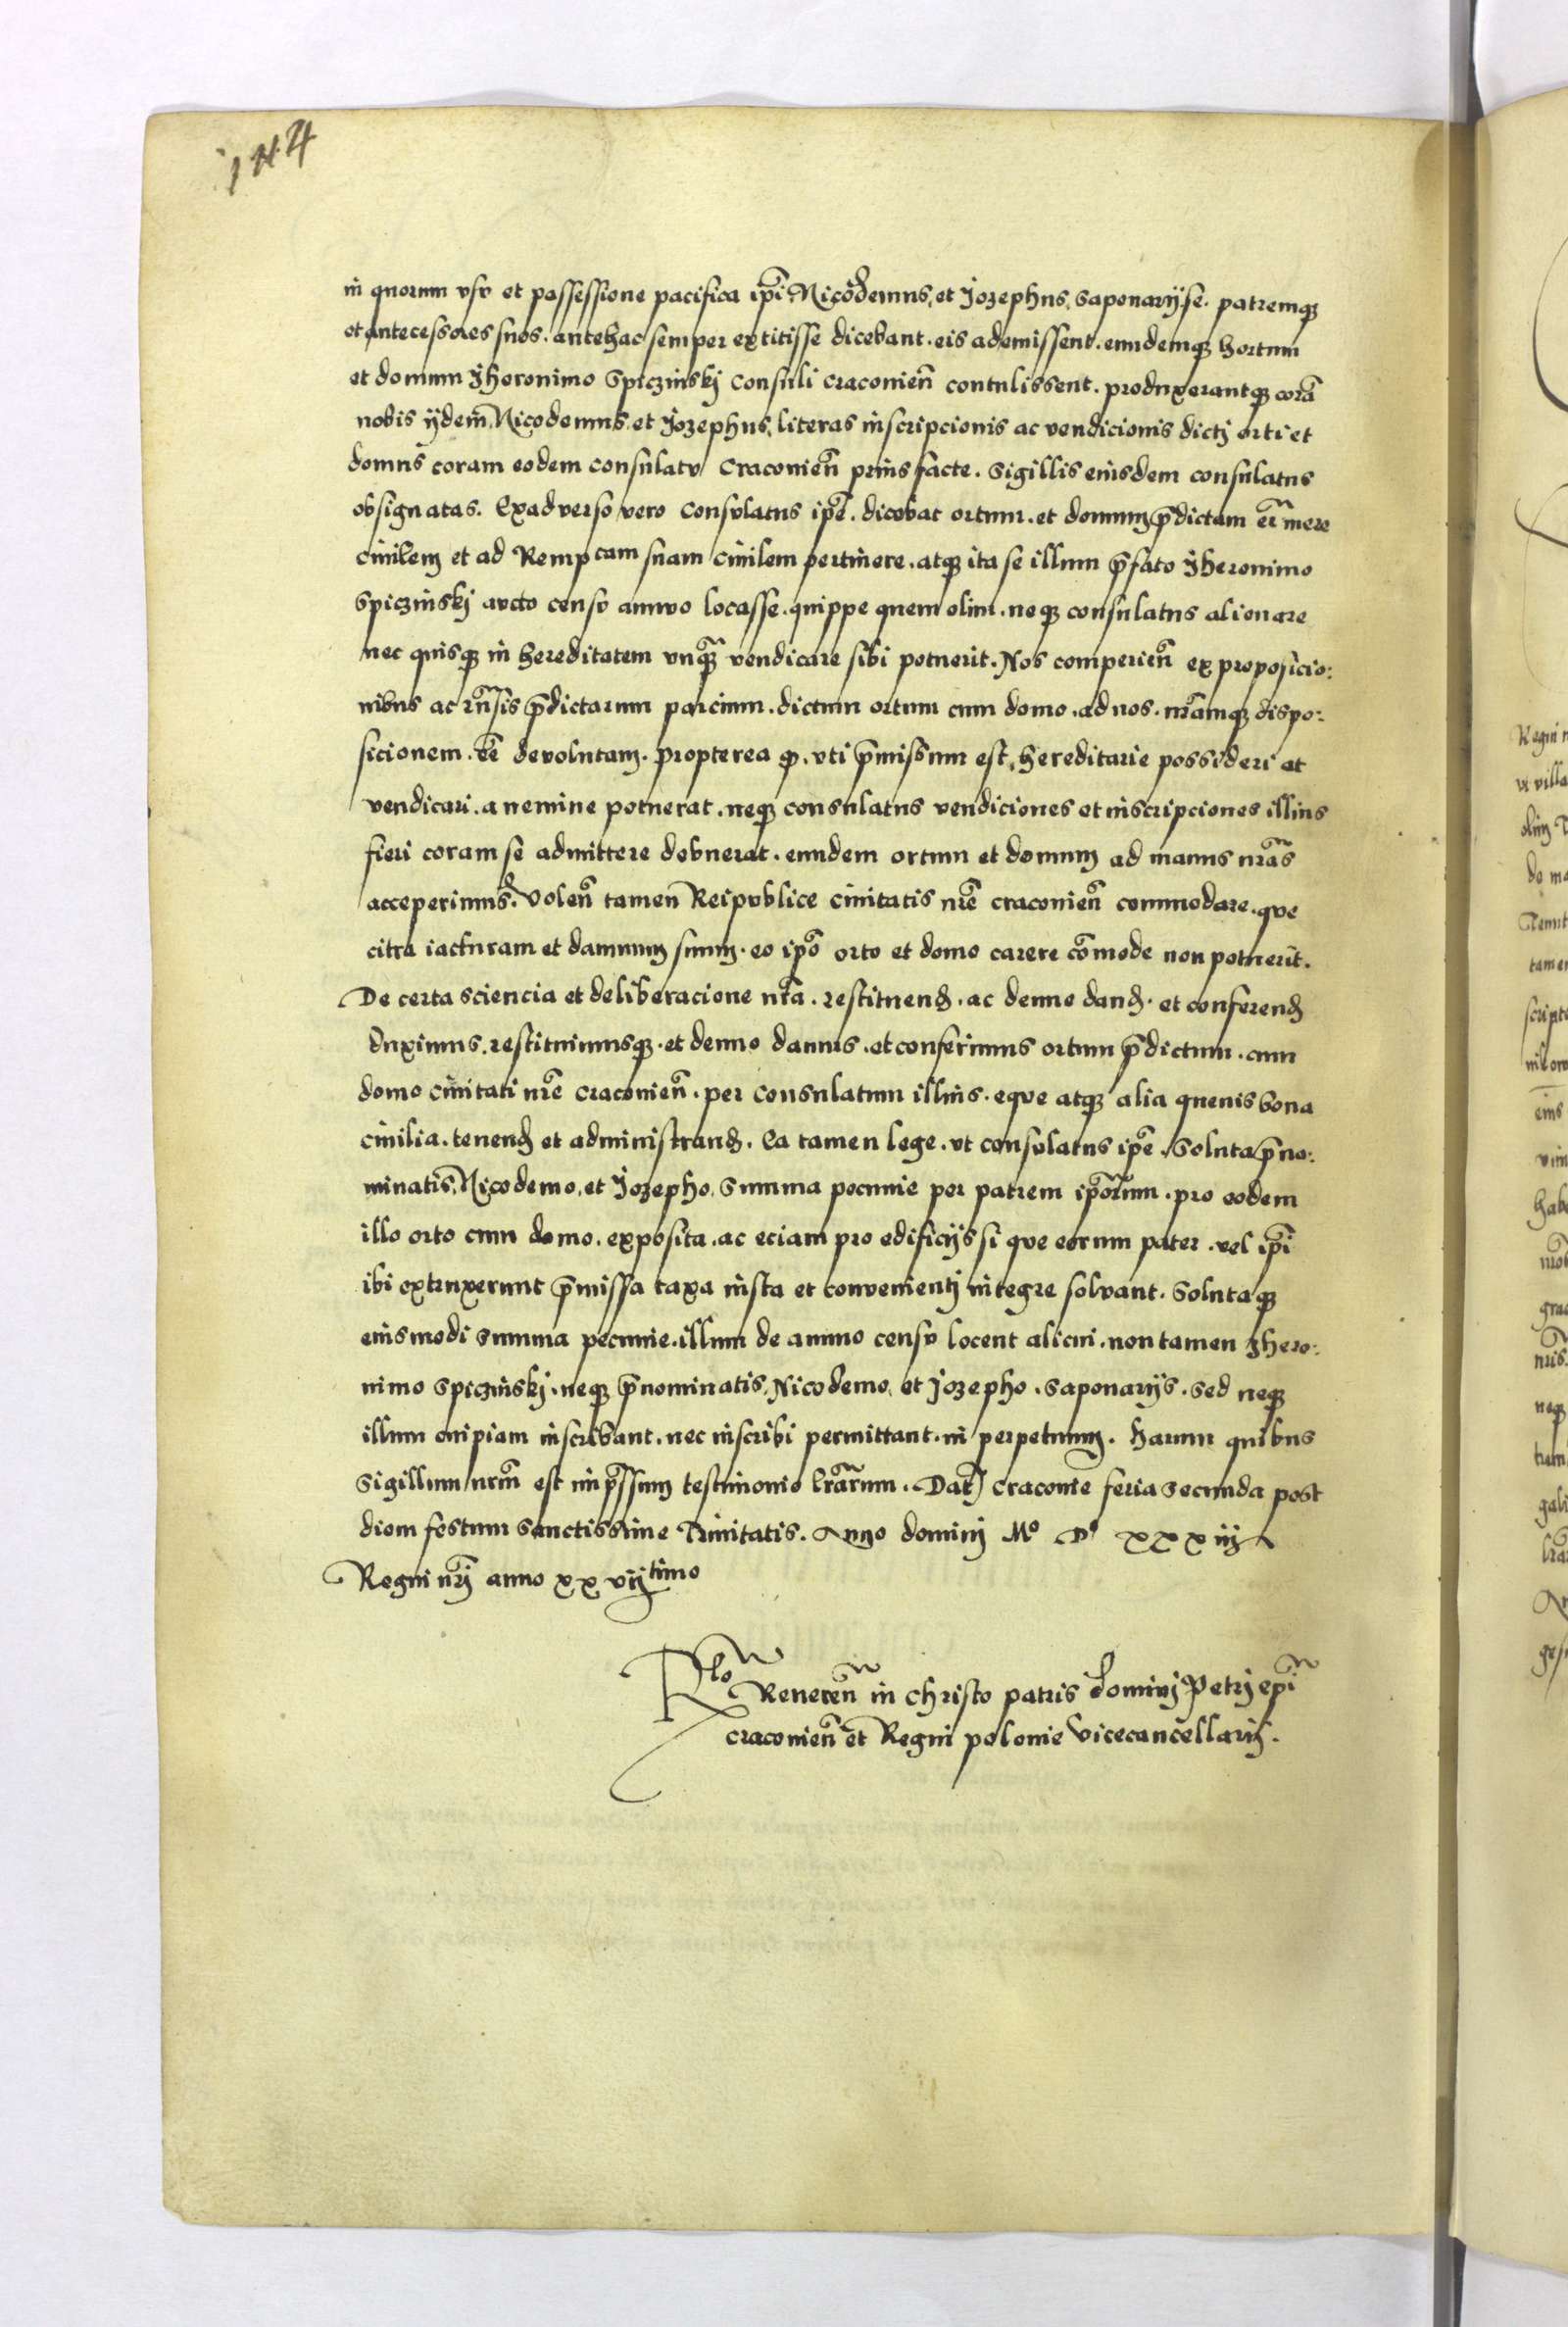 144
in quorum usu et possessione pacifica ip̄i Nicodemus, et Jozephus, saponarij se. patremq̢
et antecessores suos. antehac semper extitisse dicebant. eis ademissent. eundemq̢ hortum
et domum Jheronimo Spiczinskj consuli craconieñ contulissent. produxerantq̢ corā
nobis ijdem, Nicodemus, et Jozephus, literas inscripcionis ac vendicionis dictj orti et
domus coram eodem consulatu Craconieñ prius facte. sigillis eiusdem consulatus
obsignatas. Exadverso vero Consulatus ip̄e. dicebat ortum. et domum p̄dictam eē mere
civilem et ad Rempcam suam civilem pertinere. atq̢ ita se illum p̄fato Jheronimo
Spiczinskj aucto censu annuo locasse. quippe quem olim. neq̢ consulatus alienare
nec quisq̢ in hereditatem vnq̄ vendicare sibi potuerit. Nos comperieñ ex proposicio:
nibus ac rn̄sis p̄dictarum parcium. dictum ortum cum domo. ad nos. nr̄amq̢ dispo:
sicionem. eē devolutam. propterea q̢. vti p̄missum est, hereditarie possideri at
vendicari. a nemine potuerat. neq̢ consulatus vendiciones et inscripciones illius
fieri coram se admittere debuerat. eundem ortum et domum ad manus nr̄as
acceperimus. Voleñ tamen Reipublice civitatis nr̄e craconieñ commodare. que
citra iacturam et damnum suum. eo ip̄o orto et domo carere cōmode non potuerit.
De certa sciencia et deliberacione nr̄a. restituend̄. ac denuo dand̄. et conferend̄
duximus. restituimusq̢. et denuo damus. et conferimus ortum p̄dictum. cum
domo civitati nr̄e craconieñ. per consulatum illius. eque atq̢ alia quevis bona
civilia. tenend̄ et administrand̄. Ea tamen lege. ut consulatus ip̄e. soluta p̄no:
minatis, Nicodemo, et Jozepho, summa pecunie per patrem ip̄orum. pro eodem
illo orto cum domo. exposita. ac eciam pro edificijs si que eorum pater. vel ip̄i
ibi extruxerunt p̄missa taxa iusta et convenientj integre solvant. Solutaq̢
eiusmodi summa pecunie. illum de annuo censu locent alicui. non tamen Jhero:
nimo Spiczinskj. neq̢ p̄nominatis, Nicodemo, et Jozepho. saponarijs. sed neq̢
illum cuipiam inscribant. nec inscribi permittant. in perpetuum. harum quibus
sigillum nr̄m est imp̄ssum testimonio lr̄arum. Dat̄ Craconie feria secunda post
diem festum sanctissime Trinitatis. Anno dominj Mo Do xxxiij
Regni nr̄j anno xxvijtimo
Rlo Reverēn in Christo patris dominj Petrj ep̄i
craconieñ et Regni polonie Vicecancellarij.
Regni n
vi villa
olim T
de ma
Tenut
tamen
scripto
eius
habe
grac
nr̄is
neq̢
gali